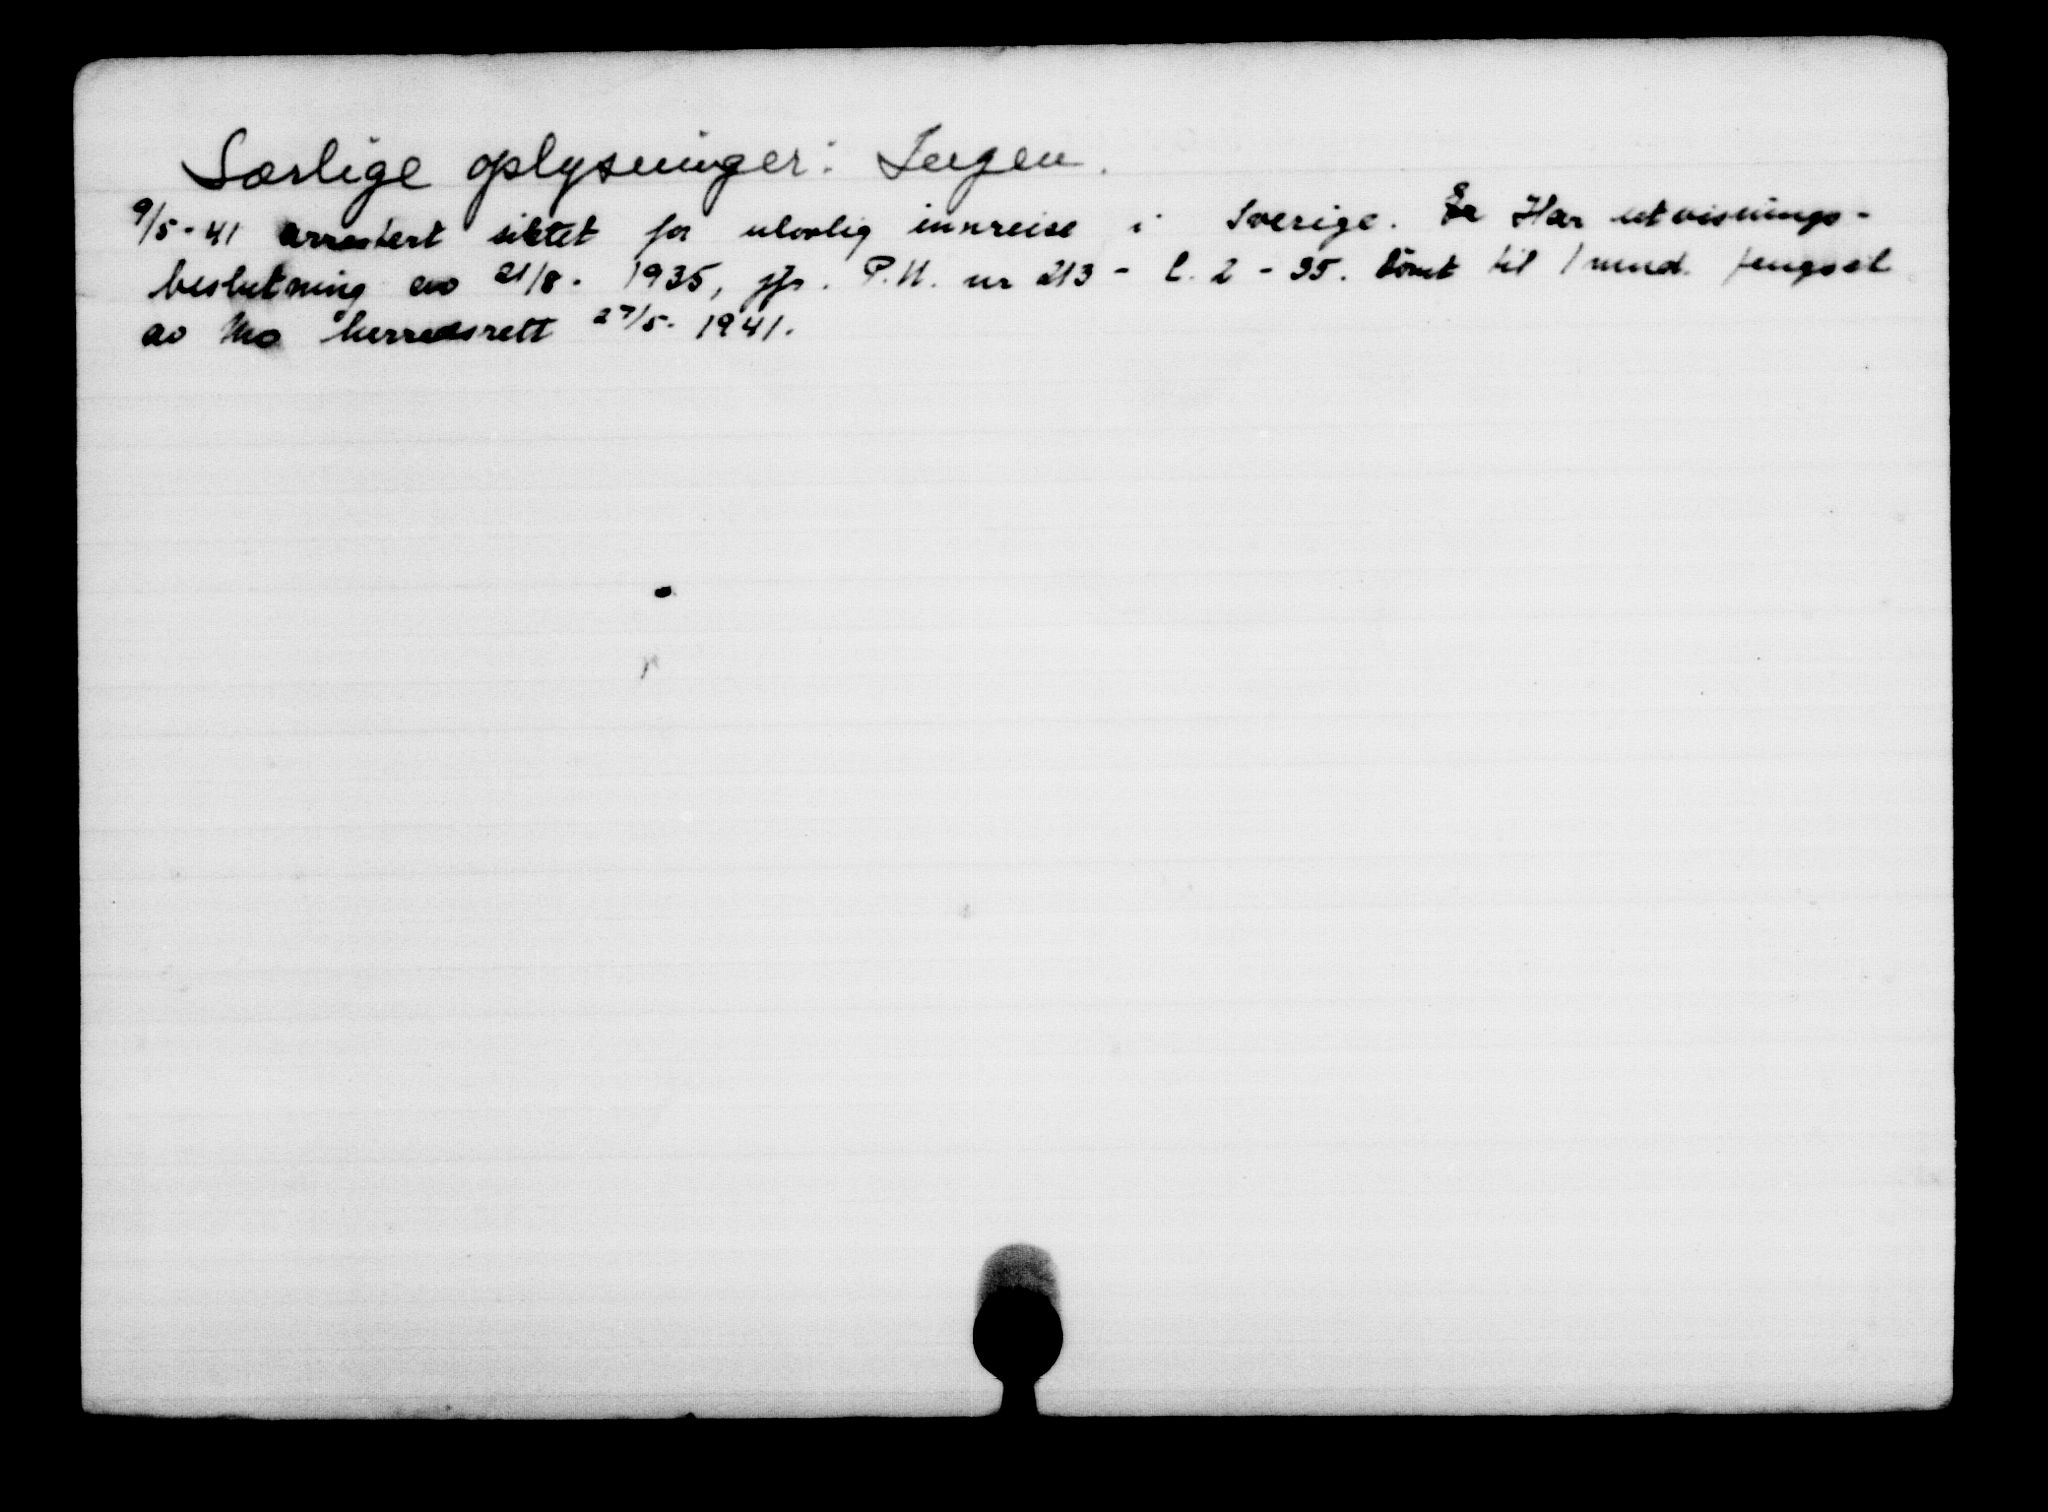 Særlige oplysninger: Ingen.
9/5-41 arrestert siktet for ulovlig innreise i Sverige. Er Har utvisnings-
beslutning av 21/8. 1935, jfr. P.U. nr 213 - l. 2 - 35. Dömt til 1 mnd. fengsel
av Mo herredsrett 27/5. 1941.